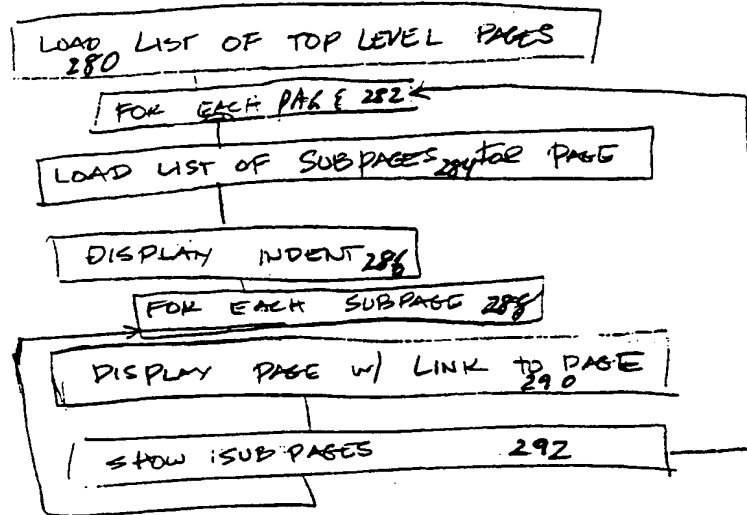 LOAD LIST OF TOP LEVEL PAGES
280
FOR EACH PAGE 282
LOAD LIST OF SUBPAGES 284 FOR PAGE
DISPLAY INDENT 286
FOR EACH SUBPAGE 288
DISPLAY PAGE w/ LINK to PAGE
290
SHOW SUBPAGES 292